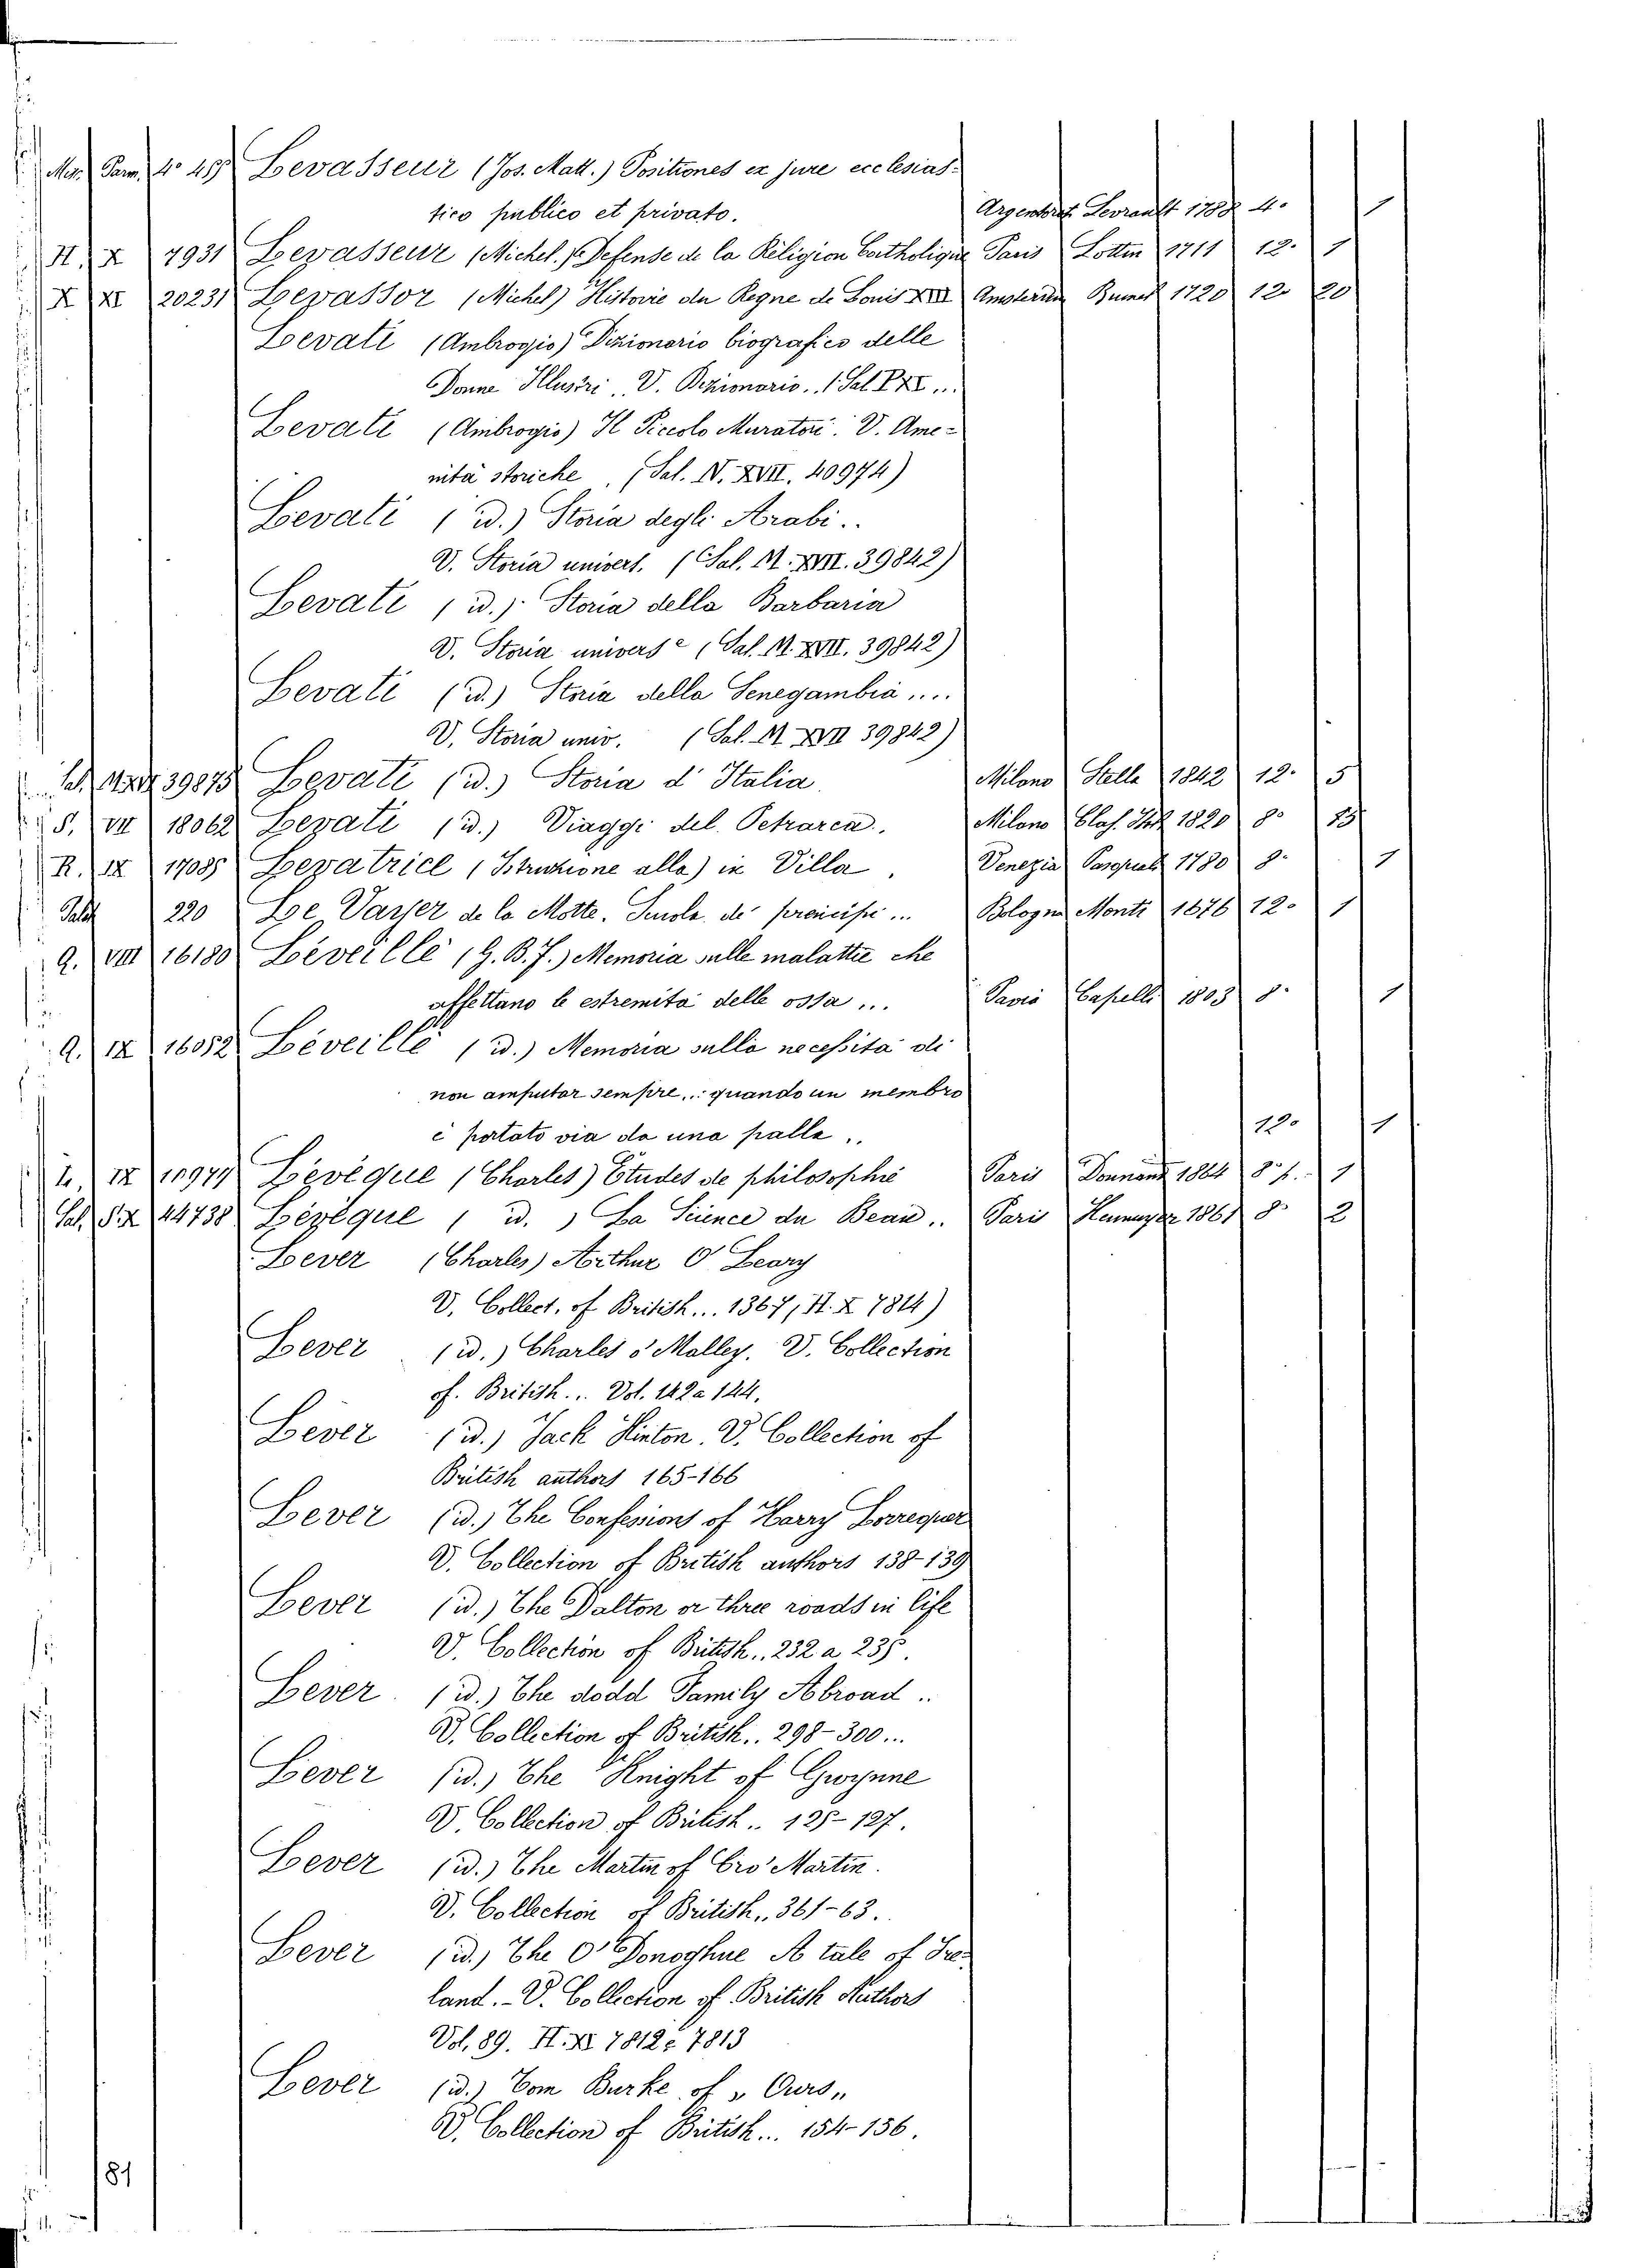 Levasseur (Jos. Matt.) Positiones ex jure ecclesias-
tico publico et privato. Argentorat Levrault 1788 4º 1
H. X 7931 Levasseur (Michel.) Defense de la Religion Catholique Paris Lottin 1711 12º 1
X XI 20231 Levassor (Michel) Histoire du Regne de Louis XIII 1720 12º 20
Levati (Ambrogio) Dizionario biografico delle
Donne Illustri.. V. Dizionario..
Levati (Ambrogio) Il Piccolo Muratori. V. Ame-
nità storiche. (Sal. N. XVII. 40974)
Levati (id.) Storia degli Arabi..
V. Storia univers. (Sal. M. XVII. 39842)
Levati (id.) Storia della Barbaria
V. Storia univers e (Sal. M. XVII. 39842)
Levati (id.) Storia della Senegambia....
V. Storia univ. (Sal. M XVII 39842)
39875 Levati (id.) Storia d'Italia. Milano Stella 1842 12º 5
S. VII 18062 Levati (id.) Viaggi del Petrarca. Milano Class. Ital. 1820 8º
R. IX 17085 Levatrice (Istruzione alla) in Villa. Venezia Pasquali 1780 8º 1
220 Le Vayer de la Motte. Scuola de' principi... Bologna Monti 1676 12º 1
Q. VIII 16180 Léveillé (G. B. F.) Memoria sulle malattie che
affettano le estremità delle ossa... Pavia Capelli 1803 8º 1
Q. IX 16052 Léveillé (id.) Memoria sulla necessità di
non amputar sempre... quando un membro
è portato via da una palla.. 12º 1
IX 10979 Lévêque (Charles) Études de philosophie Paris 1864 8º 1
Sal. 44738 Lévêque (id.) La Science du Beau.. Paris Hennuyer 1861 8º 2
Lever (Charles) Arthur O'Leary
V. Collect. of British... 1367, H. X 7814)
Lever (id.) Charles o'Malley. V. Collection
of. British... Vol. 142 a 144.
Lever (id.) Jack Hinton. V. Collection of
British authors 165-166
Lever (id.) The Confessions of Harry Lorrequer
V. Collection of British authors 138-139
Lever (id.) The Dalton or three roads in life
V. Collection of British.. 232 a 235.
Lever (id.) The dodd Family Abroad..
V. Collection of British.. 298-300...
Lever (id.) The Knight of Gwynne
V. Collection of British.. 125-127.
Lever (id.) The Martin of Cro' Martin.
V. Collection of British.. 361-63.
Lever (id.) The O'Donoghue A tale of Ire-
land. - V. Collection of British Authors
Vol. 89. H. XI 7812 e 7813
Lever (id.) Tom Burke of "Ours"
V. Collection of British... 154-156.
181